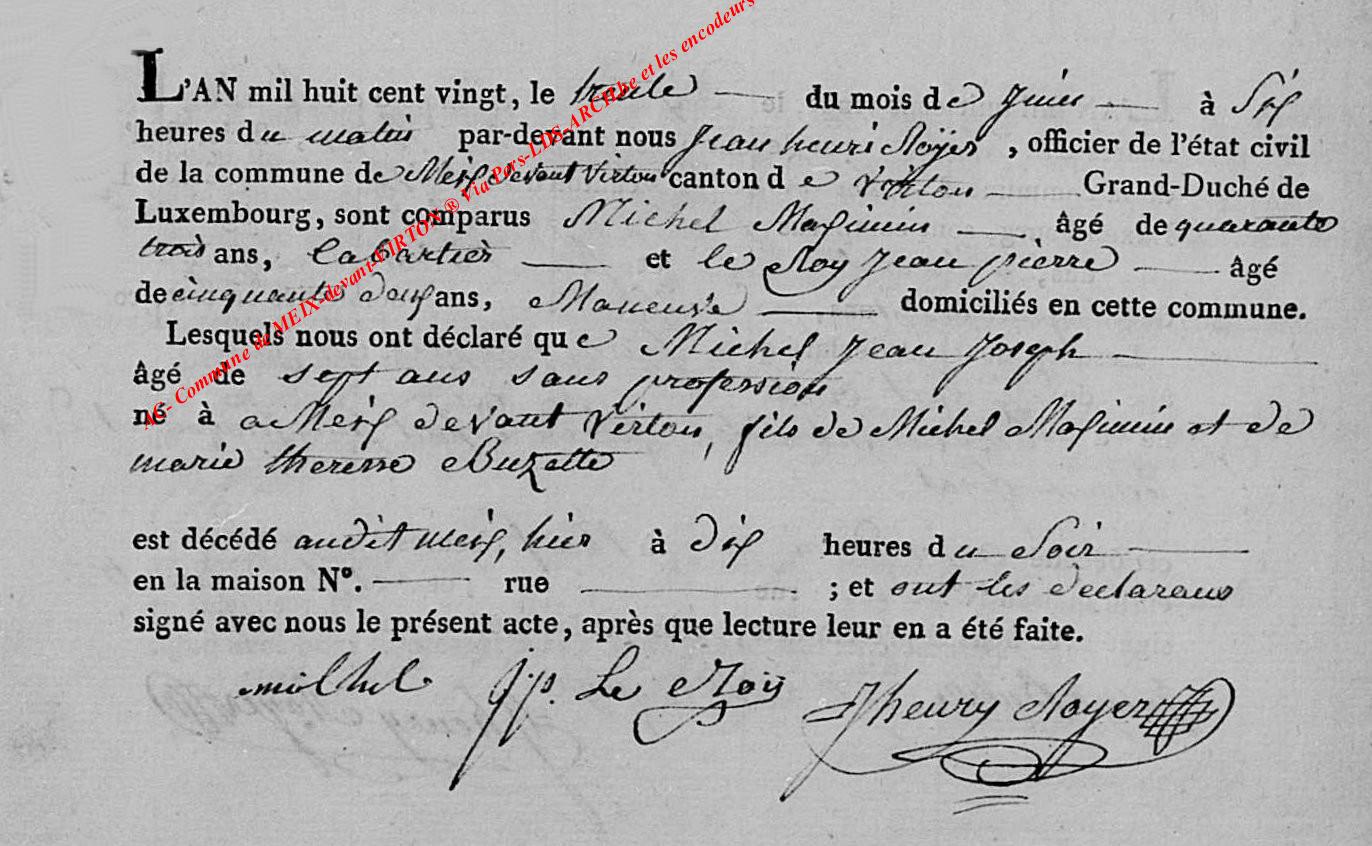 L'AN mil huit cent vingt, le trente du mois de juin à Six
heures du matin par-devant nous Jean henri Royer, officier de l'état civil
de la commune de Meix devant Virton canton de virton Grand-Duché de
Luxembourg, sont comparus Michel Maximin âgé de quarante
trois ans, et le Roy Jean pierre âgé
de cinquante deux ans, domiciliés en cette commune.
Lesquels nous ont déclaré que Michel Jean Joseph
âgé de sept ans sans profession
né à Meix devant Virton, fils de Michel Maximin et de
marie theresse Buzette
est décédé audit meix, hier à dix heures du Soir
en la maison N°. rue ; et ont les declarans
signé avec nous le présent acte, après que lecture leur en a été faite.
michel jp. Le Roy Jhenry Royer
AC- Commune de MEIX-devant-VIRTON ® Via Pers-LDS-ARCHbe et les encodeurs